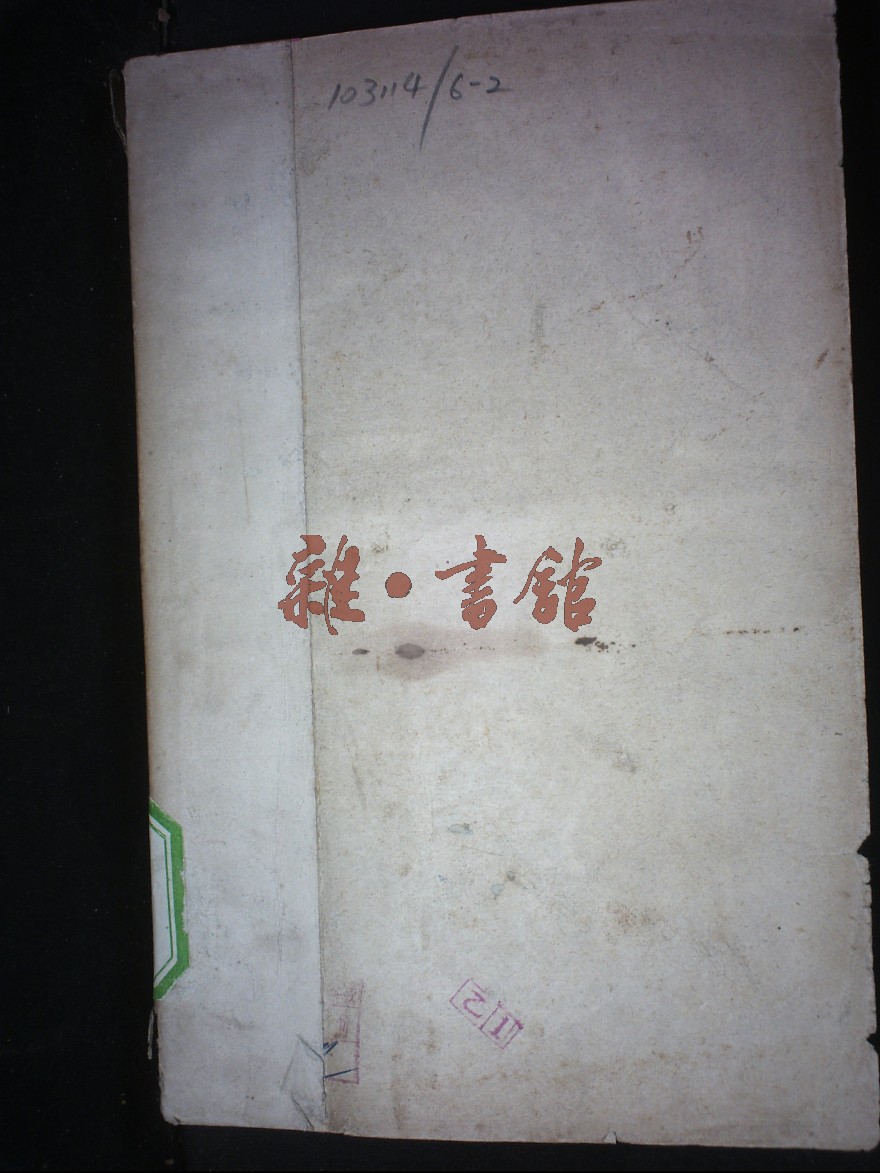 103114/6-2
雜·書館